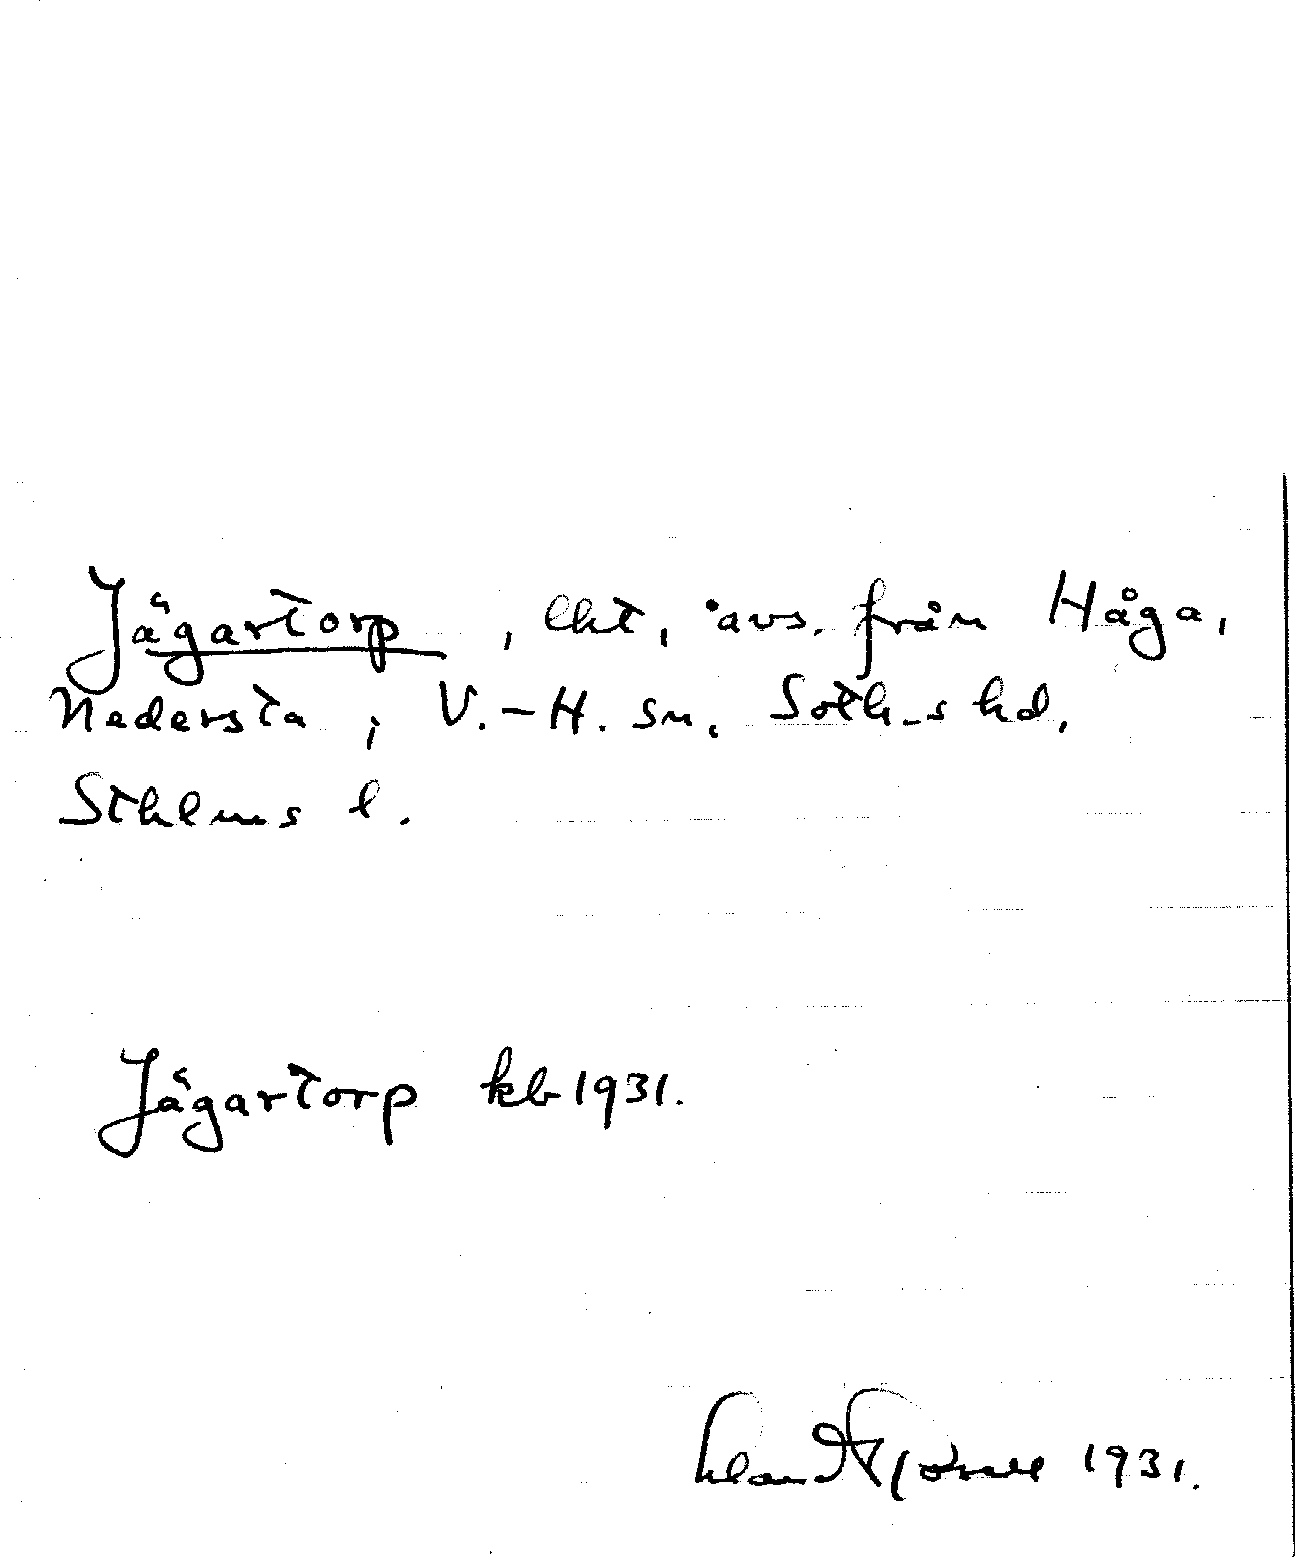 Jägartorp, lht, avs. från Håga,
Nedersta, V.-H. sn. Soth-s hd,
Sthlms l.
Jägartorp kb 1931.
1931.